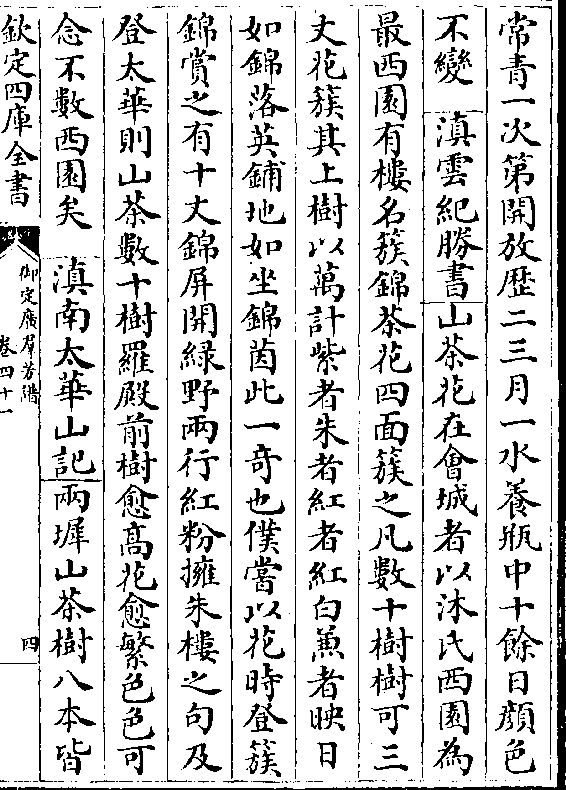 常青一次第開放歴二三月一水養瓶中十餘日顔色
不變 滇雲紀勝書山茶花在㑹城者以沐氏西園為
最西園有樓名簇錦茶花四面簇之凡數十樹樹可三
丈花簇其上樹以萬計紫者朱者紅者紅白兼者映日
如錦落英鋪地如坐錦茵此一竒也僕嘗以花時登簇
錦賞之有十丈錦屏開緑野兩行紅粉擁朱樓之句及
登太華則山茶數十樹羅殿前樹愈高花愈繁色色可
念不數西園矣 滇南太華山記兩墀山茶樹八本皆
欽定四庫全書
御定廣羣芳譜
卷四十一
四